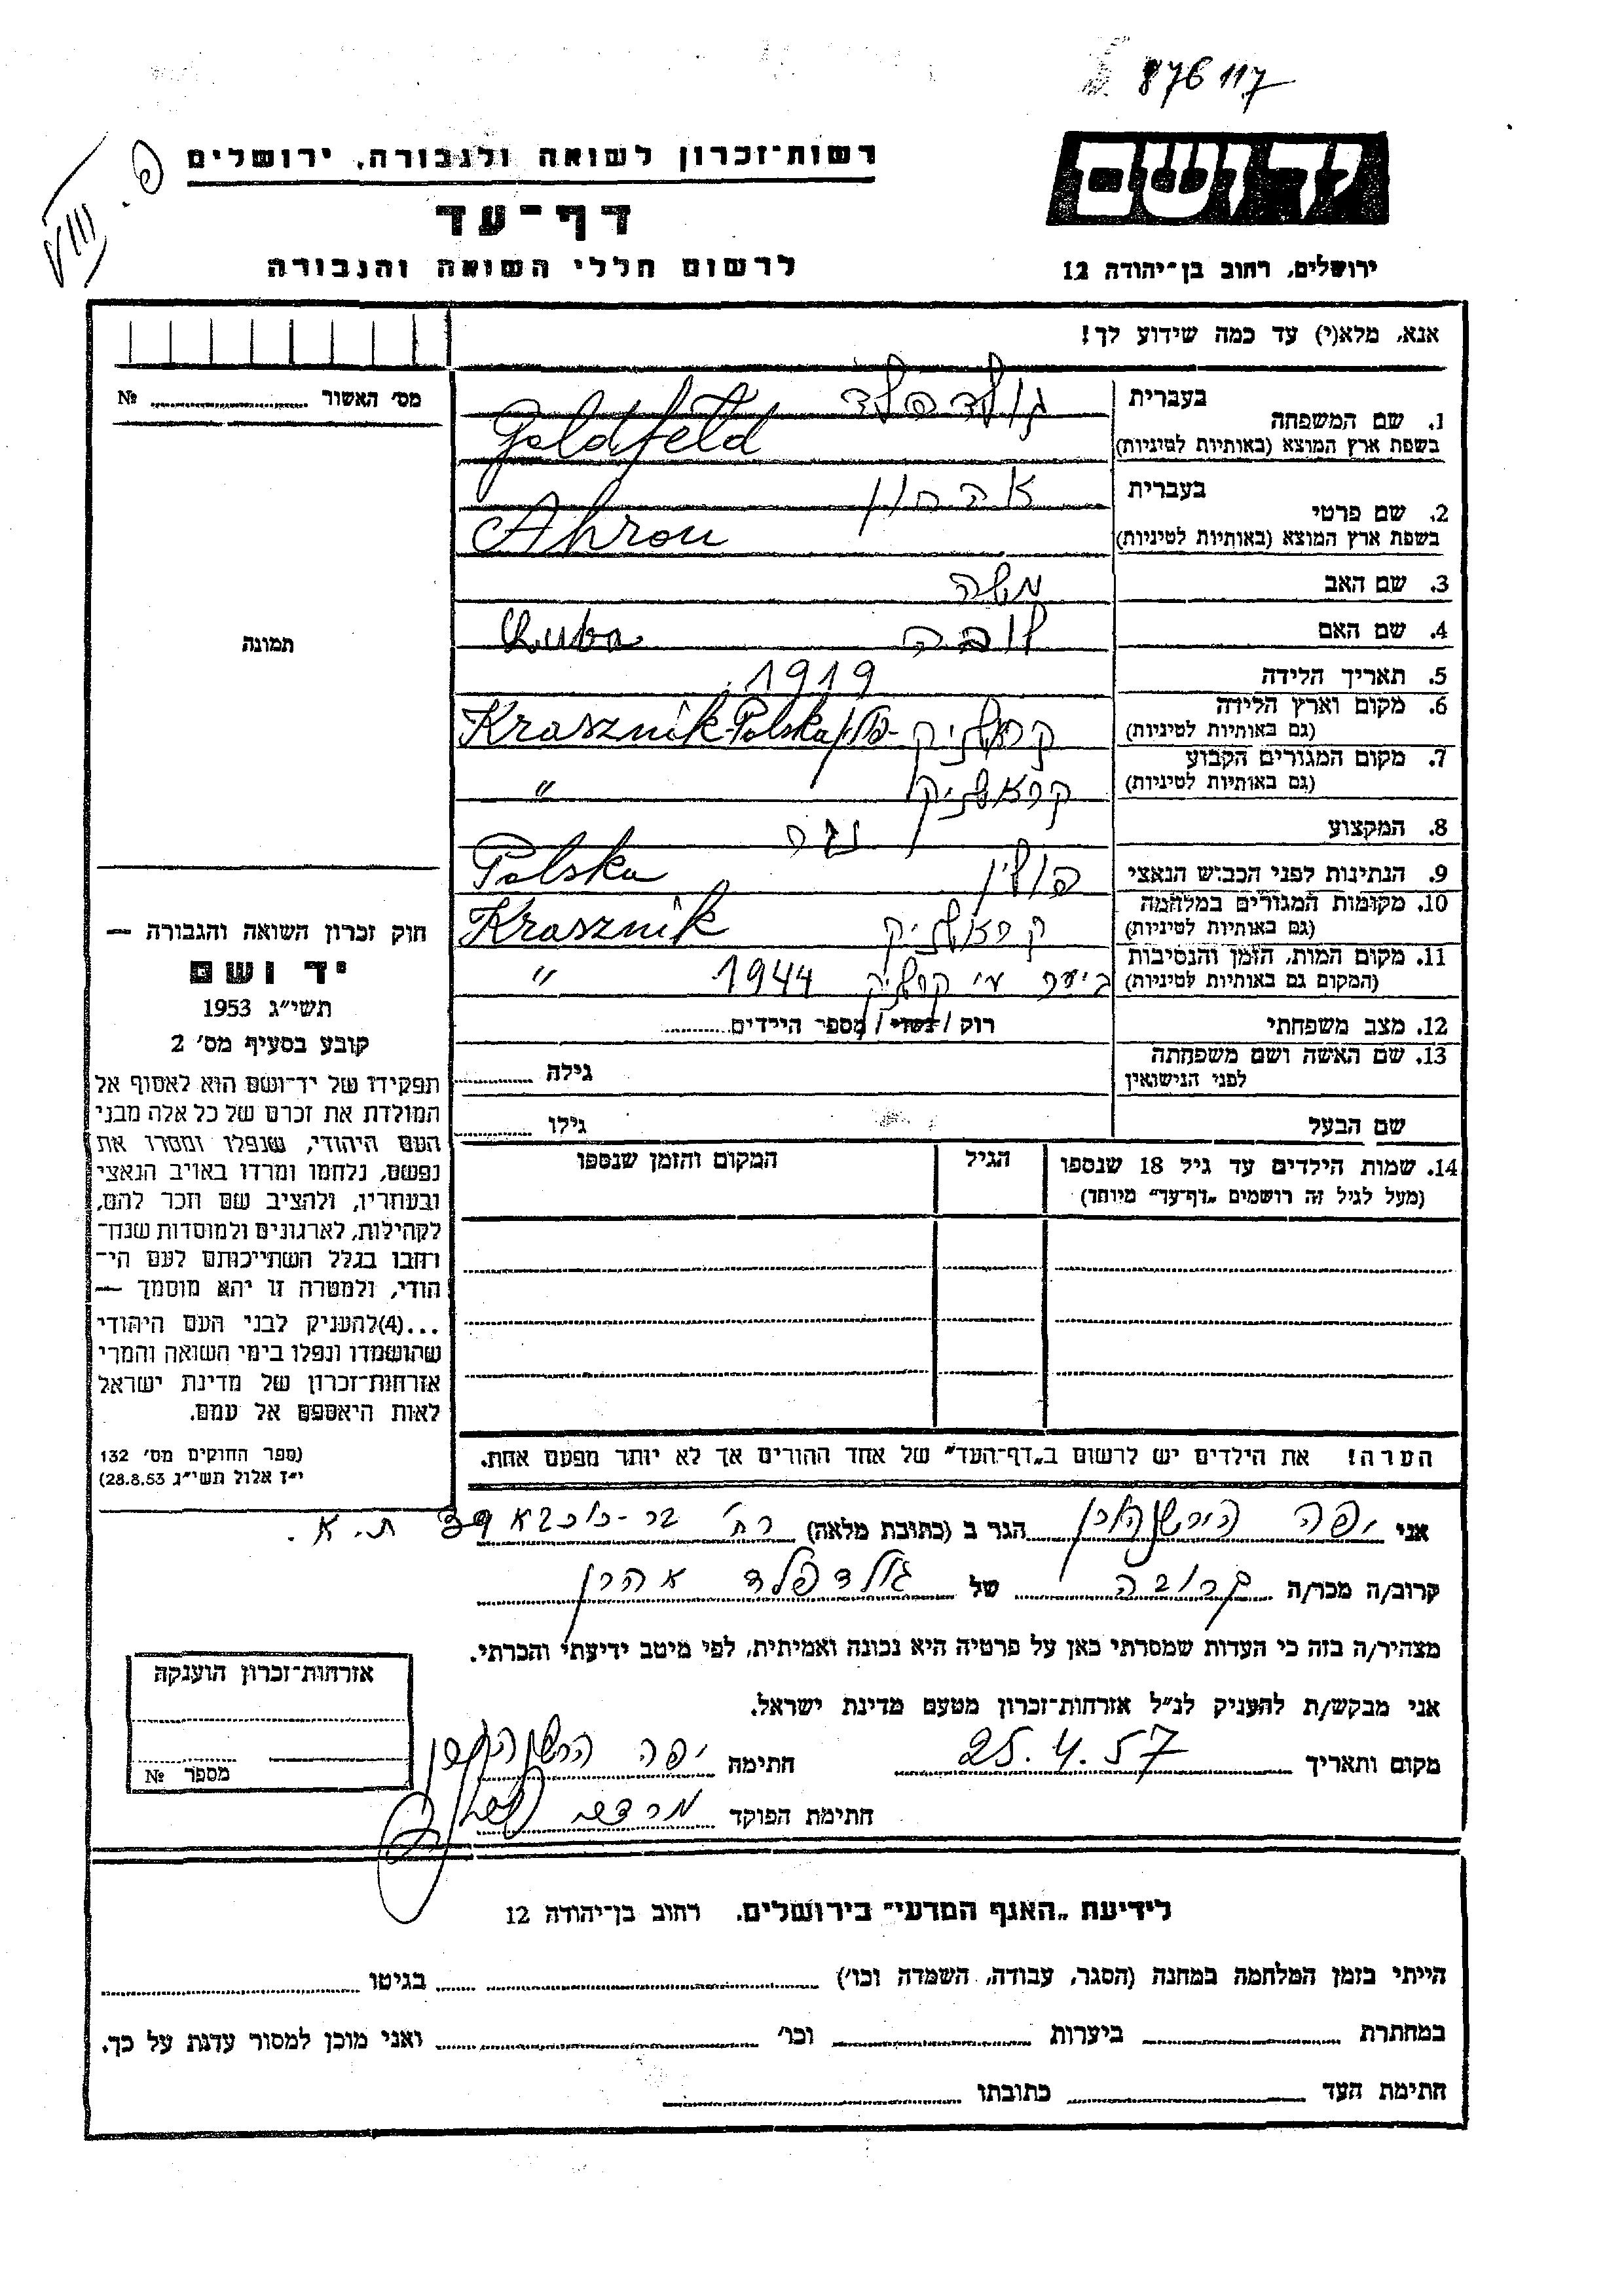 876117
יד ושם
רשות־זכרון לשואה ולגבורה, ירושלים
דף־עד
לרשום חללי השואה והגבורה
ירושלים, רחוב בן־יהודה 12
פ. VIII
אנא, מלא(י) עד כמה שידוע לך!
מס׳ האשור № 
1. שם המשפחה בעברית גולדפלד
בשפת ארץ המוצא (באותיות לטיניות) Goldfeld
2. שם פרטי בעברית אהרון
בשפת ארץ המוצא (באותיות לטיניות) Ahron
3. שם האב משה
4. שם האם לובה Luba
5. תאריך הלידה 1919
6. מקום וארץ הלידה
(גם באותיות לטיניות) קרשניק - פולין Krasznik-Polska
7. מקום המגורים הקבוע
(גם באותיות לטיניות) קראשניק "
8. המקצוע נגר
9. הנתינות לפני הכבוש הנאצי פולין Polska
10. מקומות המגורים במלחמה
(גם באותיות לטיניות) קראשניק Krasznik
11. מקום המות, הזמן והנסיבות
(המקום גם באותיות לטיניות) ביער ע״י קרשניק 1944 "
12. מצב משפחתי רוק / נשוי / מספר הילדים
13. שם האשה ושם משפחתה
לפני הנישואין גילה
שם הבעל גילו
14. שמות הילדים עד גיל 18 שנספו הגיל המקום והזמן שנספו
(מעל לגיל זה רושמים „דף־עד״ מיוחד)
הערה! את הילדים יש לרשום ב„דף־העד״ של אחד ההורים אך לא יותר מפעם אחת.
תמונה
חוק זכרון השואה והגבורה —
יד ושם
תשי״ג 1953
קובע בסעיף מס׳ 2
תפקידו של יד־ושם הוא לאסוף אל
המולדת את זכרם של כל אלה מבני
העם היהודי, שנפלו ומסרו את
נפשם, נלחמו ומרדו באויב הנאצי
ובעוזריו, ולהציב שם וזכר להם,
לקהילות, לארגונים ולמוסדות שנח־
רבו בגלל השתייכותם לעם הי־
הודי, ולמטרה זו יהא מוסמך —
...(4)להעניק לבני העם היהודי
שהושמדו ונפלו בימי השואה והמרי
אזרחות־זכרון של מדינת ישראל
לאות היאספם אל עמם.
(ספר החוקים מס׳ 132
י״ז אלול תשי״ג 28.8.53)
אני יפה הירשנהורן הגר ב (כתובת מלאה) רח׳ בר-כוכבא 39 ת.א.
קרוב/ה מכר/ה קרובה של גולדפלד אהרן
מצהיר/ה בזה כי העדות שמסרתי כאן על פרטיה היא נכונה ואמיתית, לפי מיטב ידיעתי והכרתי.
אני מבקש/ת להעניק לנ״ל אזרחות־זכרון מטעם מדינת ישראל.
מקום ותאריך 25.4.57 חתימה יפה הרשנהורן
חתימת הפוקד מרדכי
אזרחות־זכרון הוענקה
מספר №
לידיעת „האגף המדעי״ בירושלים. רחוב בן־יהודה 12
הייתי בזמן המלחמה במחנה (הסגר, עבודה, השמדה וכו׳) בגיטו
במחתרת ביערות וכו׳ ואני מוכן למסור עדות על כך.
חתימת העד כתובתו